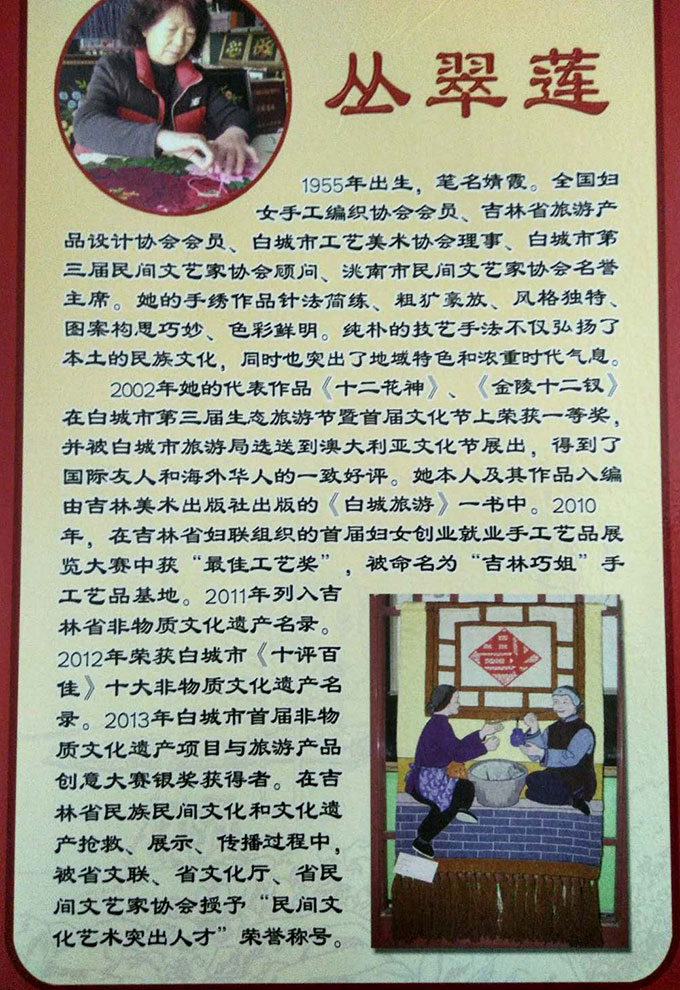 丛翠莲
1955年出生，笔名婧霞。全国妇
女手工编织协会会员、吉林省旅游产
品设计协会会员、白城市工艺美术协会理事、白城市第
三届民间文艺家协会顾问、洮南市民间文艺家协会名誉
主席。她的手绣作品针法简练、粗犷豪放、风格独特、
图案构思巧妙、色彩鲜明。纯朴的技艺手法不仅弘扬了
本土的民族文化，同时也突出了地域特色和浓重时代气息。
2002年她的代表作品《十二花神》、《金陵十二钗》
在白城市第三届生态旅游节暨首届文化节上荣获一等奖，
并被白城市旅游局选送到澳大利亚文化节展出，得到了
国际友人和海外华人的一致好评。她本人及其作品入编
由吉林美术出版社出版的《白城旅游》一书中。2010
年，在吉林省妇联组织的首届妇女创业就业手工艺品展
览大赛中获“最佳工艺奖”，被命名为“吉林巧姐”手
工艺品基地。2011年列入吉
林省非物质文化遗产名录。
2012年荣获白城市《十评百
佳》十大非物质文化遗产名
录。2013年白城市首届非物
质文化遗产项目与旅游产品
创意大赛银奖获得者。在吉
林省民族民间文化和文化遗
产抢救、展示、传播过程中，
被省文联、省文化厅、省民
间文艺家协会授予“民间文
化艺术突出人才”荣誉称号。